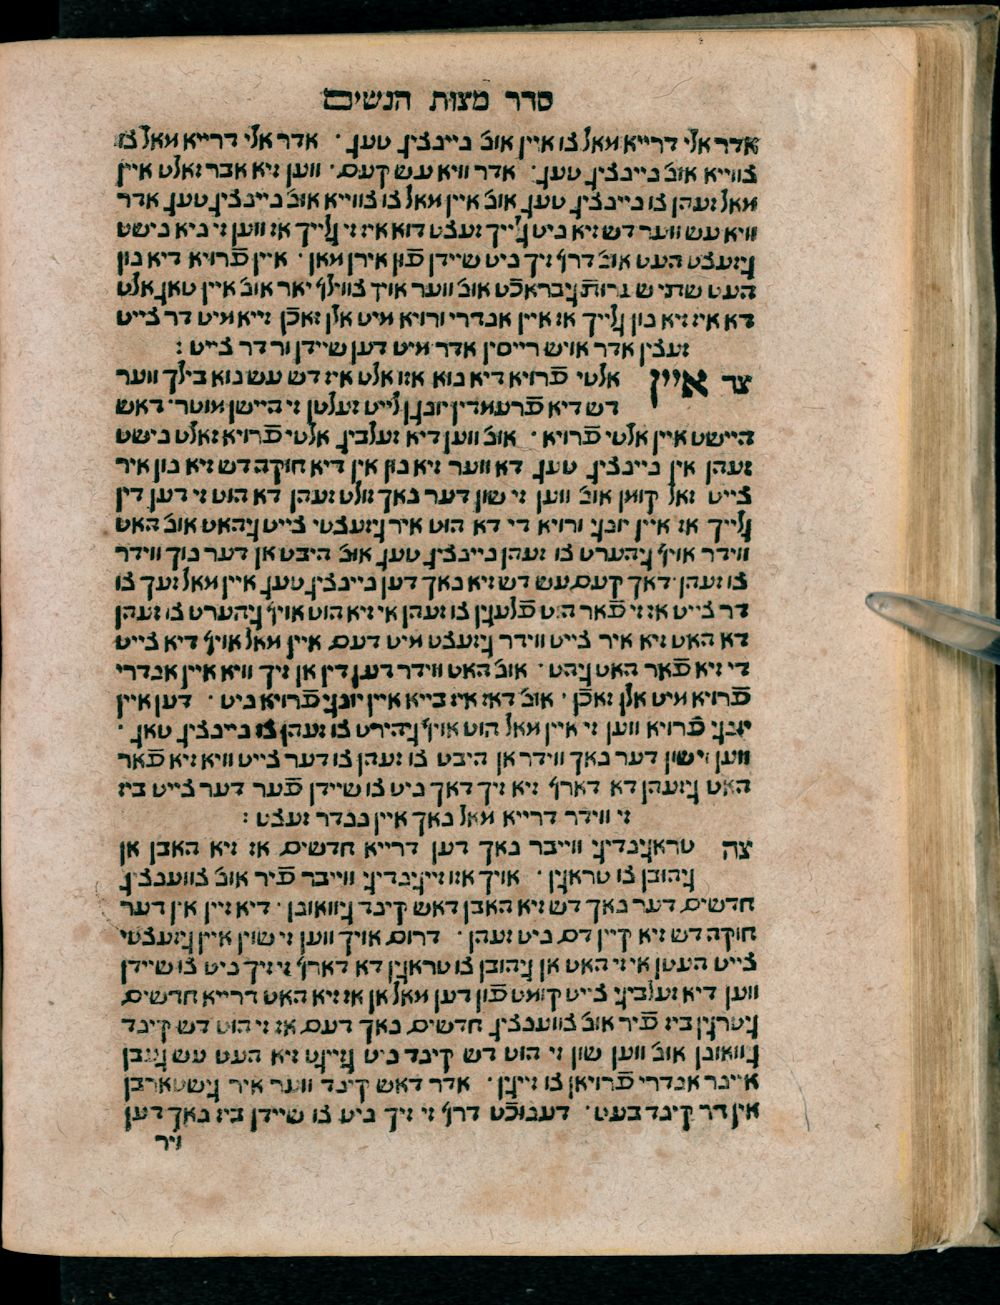 סדר מצות הנשים
אדר אלי דרייא מאל צו איין אונ׳ ניינציג טען · אדר אלי דרייא מאל צו
צווייא אונ׳ ניינציג טען · אדר וויא עש קעם · ווען זיא אבר זאלט איין
מאל זעהן צו ניינציג טען אונ׳ איין מאל צו צווייא אונ׳ ניינציג טען אדר
וויא עש ווער דש זיא ניט גלייך זעצט דוא איז זי גלייך אז ווען זי ניא נישט
גיזעצט העט אונ׳ דרף זיך ניט שיידן פֿון אירן מאן · איין פֿרויא דיא נון
העט שתי שערות גיבראכֿט אונ׳ ווער אויך צוועלף יאר אונ׳ איין טאג אלט
דא איז זיא נון גלייך אז איין אנדרי ורויא מיט אלן זאכֿן זייא מיט דר צייט
זעצין אדר אויש רייסין אדר מיט דען שיידן ור דר צייט :
צד איין אלטי פֿרויא דיא נוא אזו אלט איז דש עש נוא בילך ווער
דש דיא פֿרעמדין יונגן לייט זעלטן זי היישן מוטר · דאש
היישט איין אלטי פֿרויא · אונ׳ ווען דיא זעלביג אלטי פֿרויא זאלט נישט
זעהן אין ניינציג טען דא ווער זיא נון אין דיא חזקה דש זיא נון איר
צייט זאל קומן אונ׳ ווען זי שון דער נאך וולט זעהן דא הוט זי דען דין
גלייך אז איין יונגי ורויא די דא הוט איר גיזעצטי צייט גיהאט אונ׳ האט
ווידר אויף גיהערט צו זעהן ניינציג טען אונ׳ היבט אן דער נוך ווידר
צו זעהן · דאך קעם עש דש זיא נאך דען ניינציג טען איין מאל זעך צו
דר צייט אז זי פֿאר הט פֿלעגין צו זעהן אי זיא הוט אויף גיהערט צו זעהן
דא האט זיא איר צייט ווידר גיזעצט מיט דעם איין מאל אויף דיא צייט
די זיא פֿאר האט גיהט · אונ׳ האט ווידר דען דין אן זיך וויא איין אנדרי
פֿרויא מיט אלן זאכֿן · אונ׳ דאז איז בייא איין יונגי פֿרויא ניט · דען איין
יונגי פֿרויא ווען זי איין מאל הוט אויף גיהירט צו זעהן צו ניינציג טאג ·
ווען זי שון דער נאך ווידר אן היבט צו זעהן צו דער צייט וויא זיא פֿאר
האט גיזעהן דא דארף זיא זיך דאך ניט צו שיידן פֿער דער צייט ביז
זי ווידר דרייא מאל נאך אייננדר זעצט :
צה טראגינדיגי ווייבר נאך דען דרייא חדשים אז זיא האבן אן
גיהובן צו טראגין · אויך אזו זייגינדיגי ווייבר פֿיר אונ׳ צוועבציג
חדשים דער נאך דש זיא האבן דאש קינד גיוואונן · דיא זיין אין דער
חזקה דש זיא קיין דם ניט זעהן · דרום אויך ווען זי שוין איין גיזעצטי
צייט העטן אי זי האט אן גיהובן צו טראגין דא דארף זי זיך ניט צו שיידן
ווען דיא זעלביגי צייט קומט פֿון דען מאל אן אז זיא האט דרייא חדשים
גיטרגין ביז פֿיר אונ׳ צוועבציג חדשים נאך דעם אז זי הוט דש קינד
גיוואונן אונ׳ ווען שון זי הוט דש קינד ניט גיזייגט זיא העט עש געבן
איינר אנדרי פֿרויאן צו זייגן · אדר דאש קינד ווער איר גישטארבן
אין דר קינדבעט · דענוכֿט דרף זי זיך ניט צו שיידן ביז נאך דען
ויר